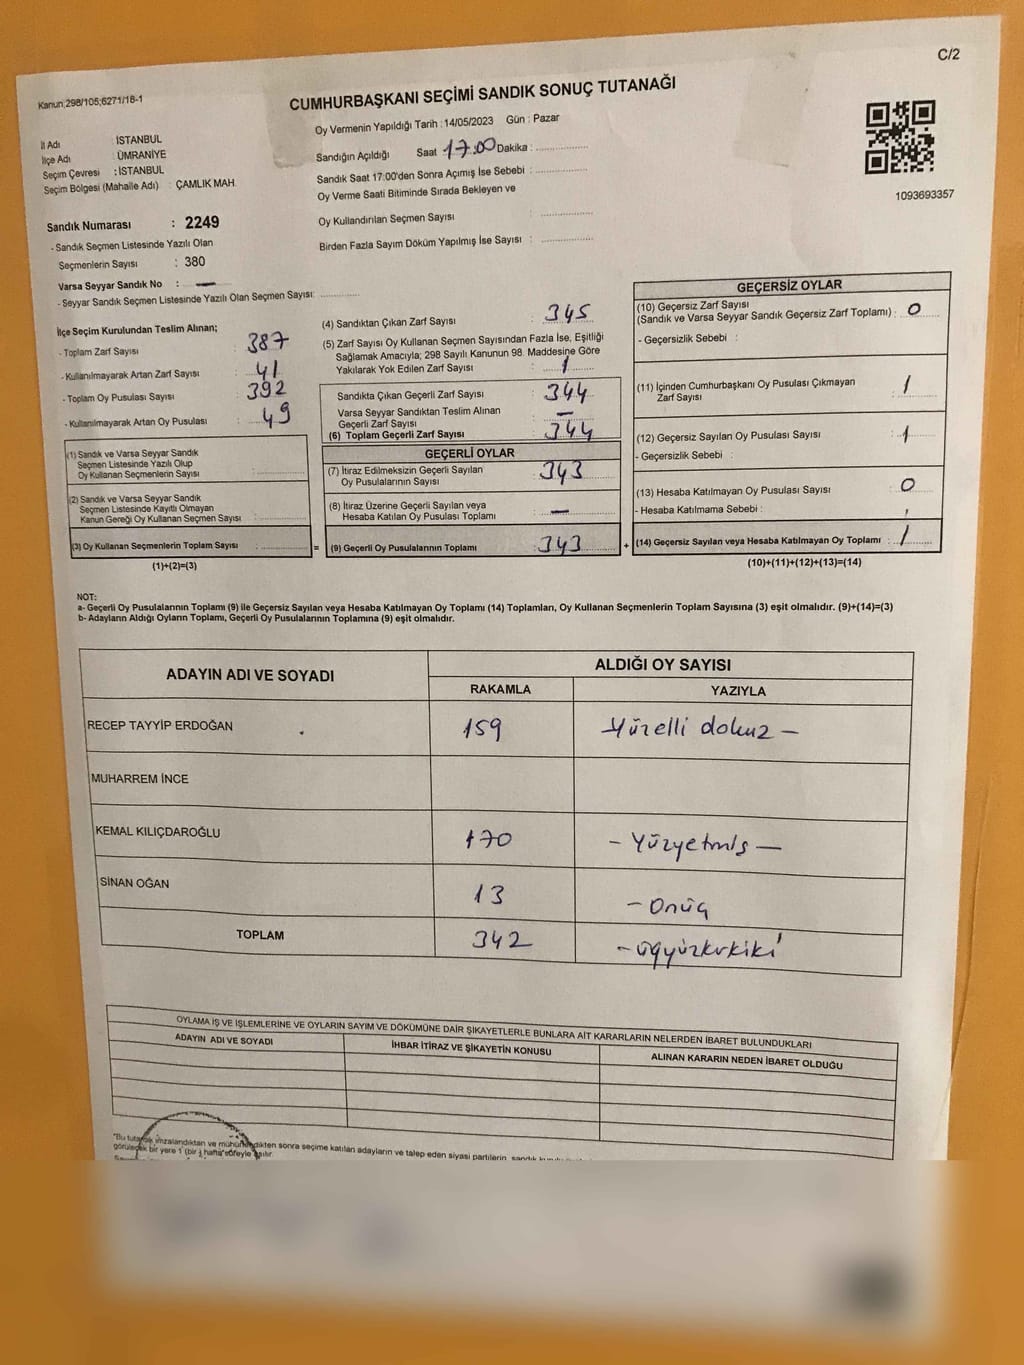 C/2
Kanun;298/105;6271/18-1
CUMHURBAŞKANI SEÇİMİ SANDIK SONUÇ TUTANAĞI
Oy Vermenin Yapıldığı Tarih : 14/05/2023 Gün : Pazar
İl Adı : İSTANBUL
İlçe Adı : ÜMRANİYE
Seçim Çevresi : İSTANBUL
Seçim Bölgesi (Mahalle Adı) : ÇAMLIK MAH.
Sandığın Açıldığı Saat 17:00 Dakika :
Sandık Saat 17:00'den Sonra Açımış İse Sebebi :
Oy Verme Saati Bitiminde Sırada Bekleyen ve
Oy Kullandırılan Seçmen Sayısı :
Birden Fazla Sayım Döküm Yapılmış İse Sayısı :
1093693357
Sandık Numarası : 2249
- Sandık Seçmen Listesinde Yazılı Olan
Seçmenlerin Sayısı : 380
Varsa Seyyar Sandık No : —
- Seyyar Sandık Seçmen Listesinde Yazılı Olan Seçmen Sayısı:
İlçe Seçim Kurulundan Teslim Alınan;
- Toplam Zarf Sayısı : 387
- Kullanılmayarak Artan Zarf Sayısı : 41
- Toplam Oy Pusulası Sayısı : 392
- Kullanılmayarak Artan Oy Pusulası : 49
(1) Sandık ve Varsa Seyyar Sandık
Seçmen Listesinde Yazılı Olup
Oy Kullanan Seçmenlerin Sayısı :
(2) Sandık ve Varsa Seyyar Sandık
Seçmen Listesinde Kayıtlı Olmayan
Kanun Gereği Oy Kullanan Seçmen Sayısı :
(3) Oy Kullanan Seçmenlerin Toplam Sayısı :
(1)+(2)=(3)
(4) Sandıktan Çıkan Zarf Sayısı : 345
(5) Zarf Sayısı Oy Kullanan Seçmen Sayısından Fazla İse, Eşitliği
Sağlamak Amacıyla; 298 Sayılı Kanunun 98. Maddesine Göre
Yakılarak Yok Edilen Zarf Sayısı : 1
Sandıkta Çıkan Geçerli Zarf Sayısı : 344
Varsa Seyyar Sandıktan Teslim Alınan
Geçerli Zarf Sayısı : —
(6) Toplam Geçerli Zarf Sayısı : 344
GEÇERLİ OYLAR
(7) İtiraz Edilmeksizin Geçerli Sayılan
Oy Pusulalarının Sayısı : 343
(8) İtiraz Üzerine Geçerli Sayılan veya
Hesaba Katılan Oy Pusulası Toplamı : —
= (9) Geçerli Oy Pusulalarının Toplamı : 343
GEÇERSİZ OYLAR
(10) Geçersiz Zarf Sayısı
(Sandık ve Varsa Seyyar Sandık Geçersiz Zarf Toplamı) : 0
- Geçersizlik Sebebi :
(11) İçinden Cumhurbaşkanı Oy Pusulası Çıkmayan
Zarf Sayısı : 1
(12) Geçersiz Sayılan Oy Pusulası Sayısı : 1
- Geçersizlik Sebebi :
(13) Hesaba Katılmayan Oy Pusulası Sayısı : 0
- Hesaba Katılmama Sebebi :
+ (14) Geçersiz Sayılan veya Hesaba Katılmayan Oy Toplamı : 1
(10)+(11)+(12)+(13)=(14)
NOT:
a- Geçerli Oy Pusulalarının Toplamı (9) ile Geçersiz Sayılan veya Hesaba Katılmayan Oy Toplamı (14) Toplamları, Oy Kullanan Seçmenlerin Toplam Sayısına (3) eşit olmalıdır. (9)+(14)=(3)
b- Adayların Aldığı Oyların Toplamı, Geçerli Oy Pusulalarının Toplamına (9) eşit olmalıdır.
ADAYIN ADI VE SOYADI
ALDIĞI OY SAYISI
RAKAMLA YAZIYLA
RECEP TAYYİP ERDOĞAN 159 Yüzelli dokuz —
MUHARREM İNCE
KEMAL KILIÇDAROĞLU 170 - Yüzyetmiş —
SİNAN OĞAN 13 - Onüç
TOPLAM 342 - üçyüzkırkiki
OYLAMA İŞ VE İŞLEMLERİNE VE OYLARIN SAYIM VE DÖKÜMÜNE DAİR ŞİKAYETLERLE BUNLARA AİT KARARLARIN NELERDEN İBARET BULUNDUKLARI
ADAYIN ADI VE SOYADI İHBAR İTİRAZ VE ŞİKAYETİN KONUSU ALINAN KARARIN NEDEN İBARET OLDUĞU
"Bu tutanak imzalandıktan ve mühürlendikten sonra seçime katılan adayların ve talep eden siyasi partilerin, sandık
görülecek bir yere 1 (bir) hafta süreyle asılır.